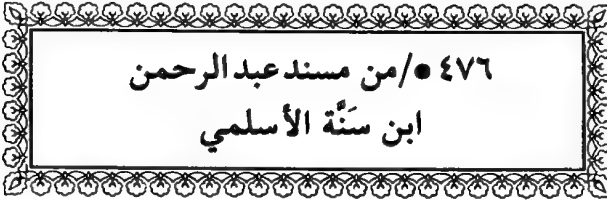 ٤٧٦ ●/من مسند عبدالرحمن
ابن سَنَّة الأسلمي